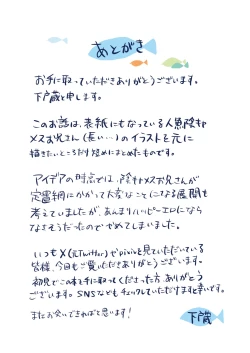 あとがき
お手に取っていただきありがとうございます。
下戸蔵と申します。
このお話は、表紙にもなっている人魚陰キャ
メスお兄さん(長い…)のイラストを元に
描きたいところだけ短めにまとめたものです。
アイデアの時点では、陰キャメスお兄さんが
定置網にかかって大変なことになる展開も
考えていましたが、あんまりハッピーエンドになら
なそうだったのでやめてしまいました。
いつもX(旧Twitter)やpixivを見ていただいている
皆様、今回もご覧いただきありがとうございます。
初見でこの本を手に取ってくださった方、ありがとう
ございます。SNSなどもチェックしていただけますと幸いです。
またお会いできればと思います!
下戸蔵